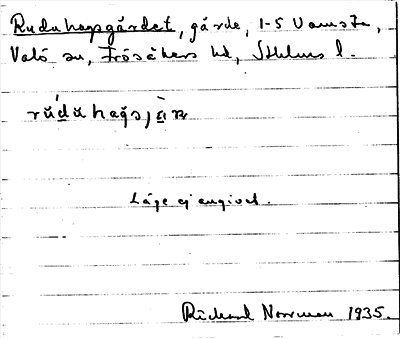 Ruduhagsgärdet, gärde, 1-5 Vamsta,
Valö sn, Frösåkers hd, Sthlms l.
Läge ej angivet.
Rickard Norrman 1935.